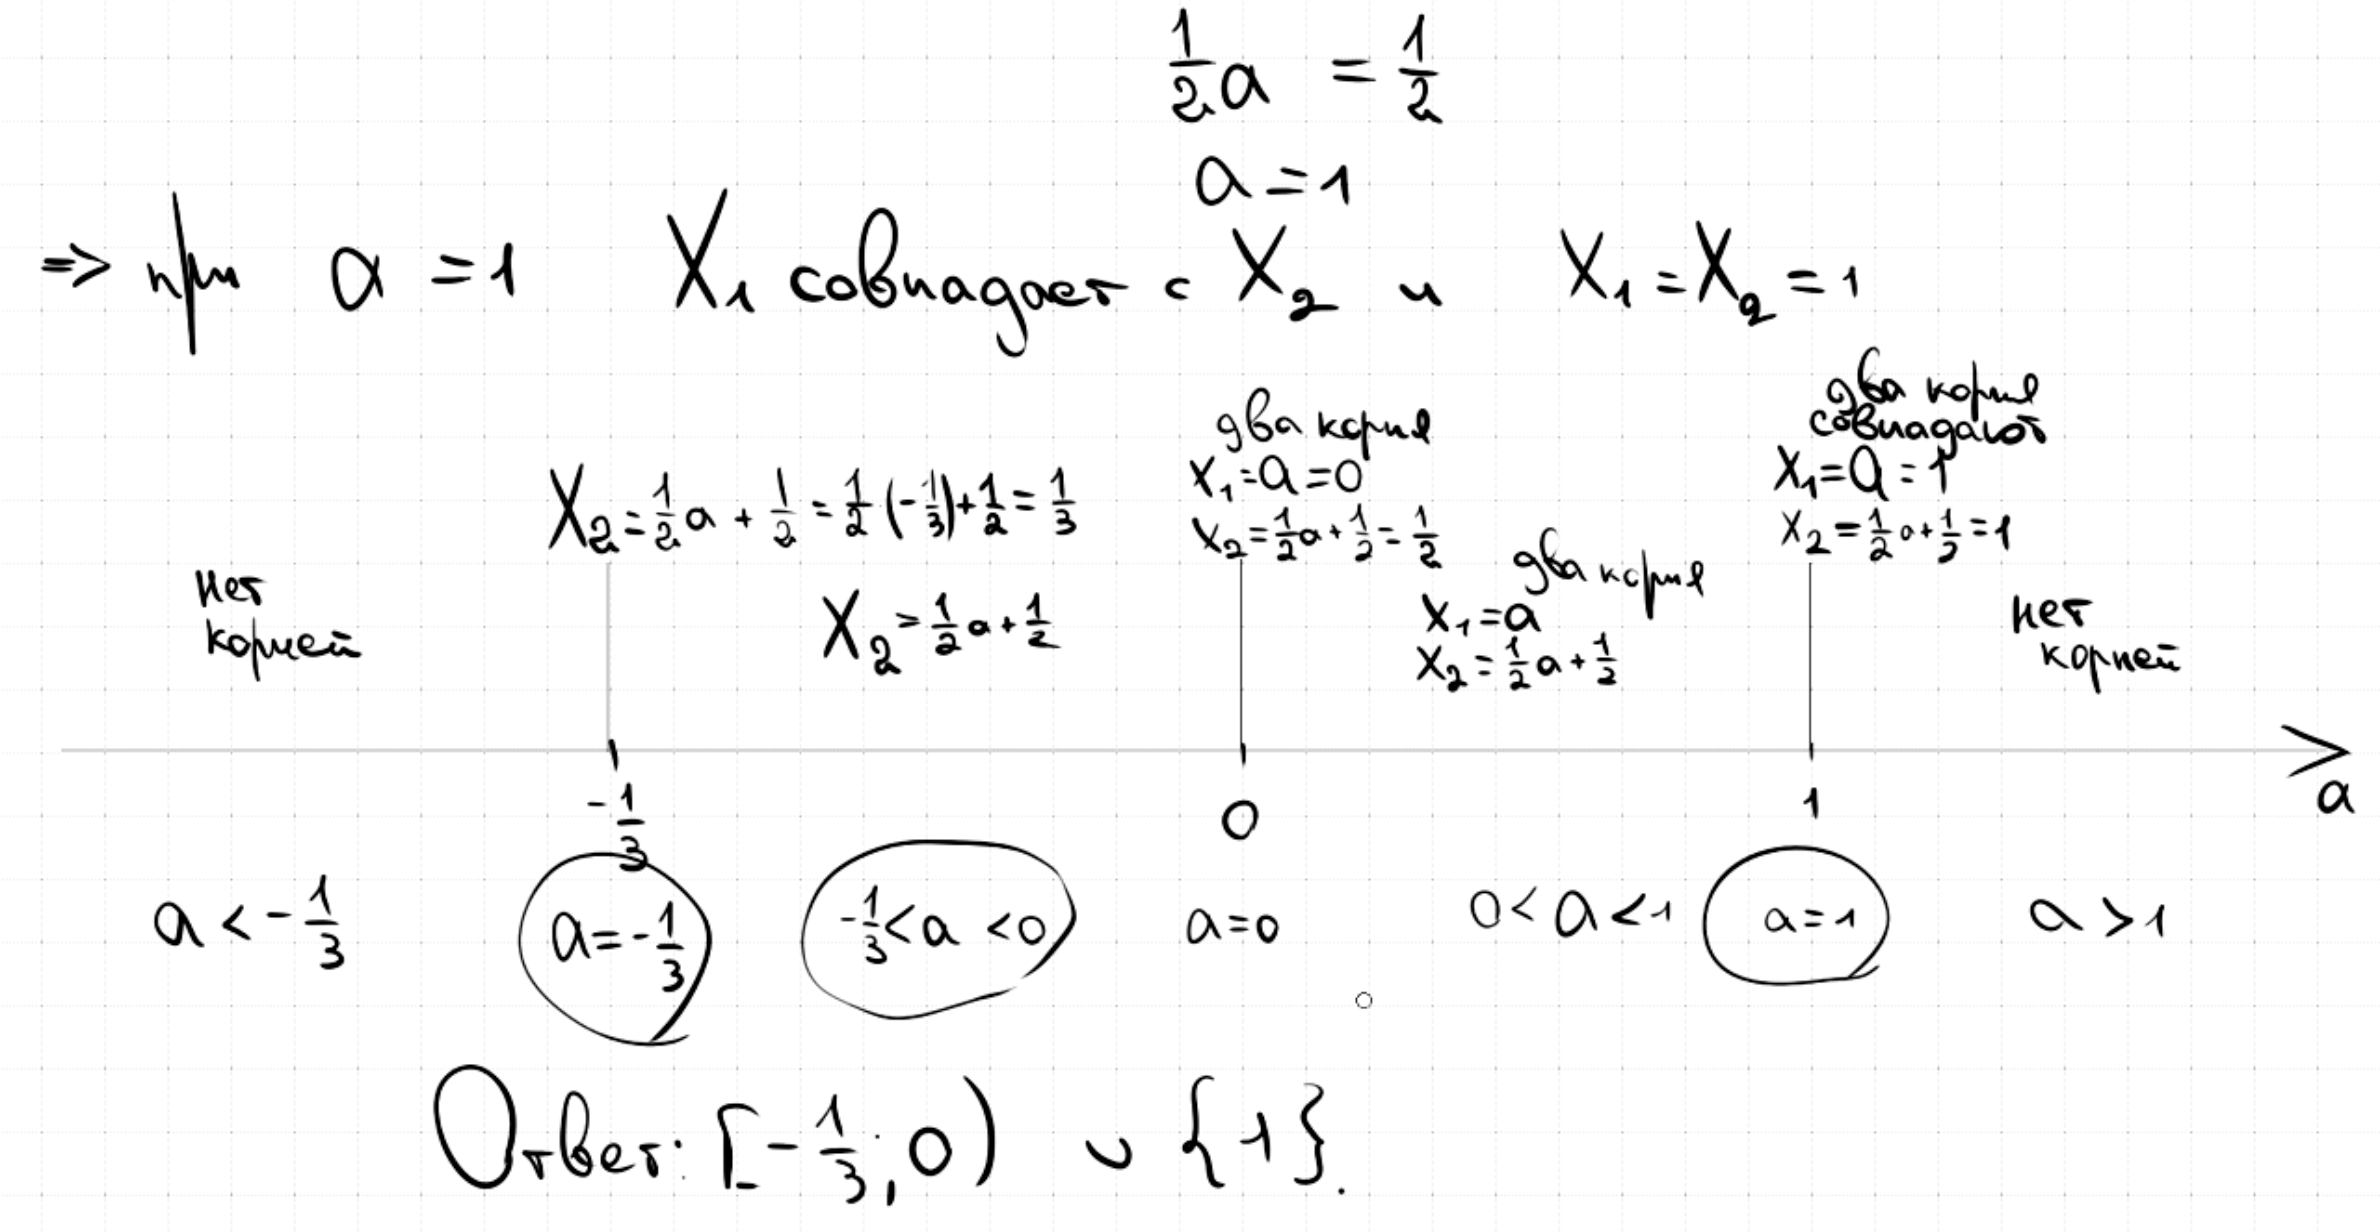 1/2 a = 1/2
a = 1
=> при a = 1 X₁ совпадает с X₂ и X₁ = X₂ = 1
два корня
совпадают
X₁ = a = 1
X₂ = 1/2 a + 1/2 = 1
два корня
X₁ = a = 0
X₂ = 1/2 a + 1/2 = 1/2
X₂ = 1/2 a + 1/2 = 1/2 (-1/3) + 1/2 = 1/3
нет
корней
X₂ = 1/2 a + 1/2
два корня
X₁ = a
X₂ = 1/2 a + 1/2
нет
корней
-1/3 0 1 a
a < -1/3 a = -1/3 -1/3 < a < 0 a = 0 0 < a < 1 a = 1 a > 1
Ответ: [-1/3; 0) ∪ {1}.